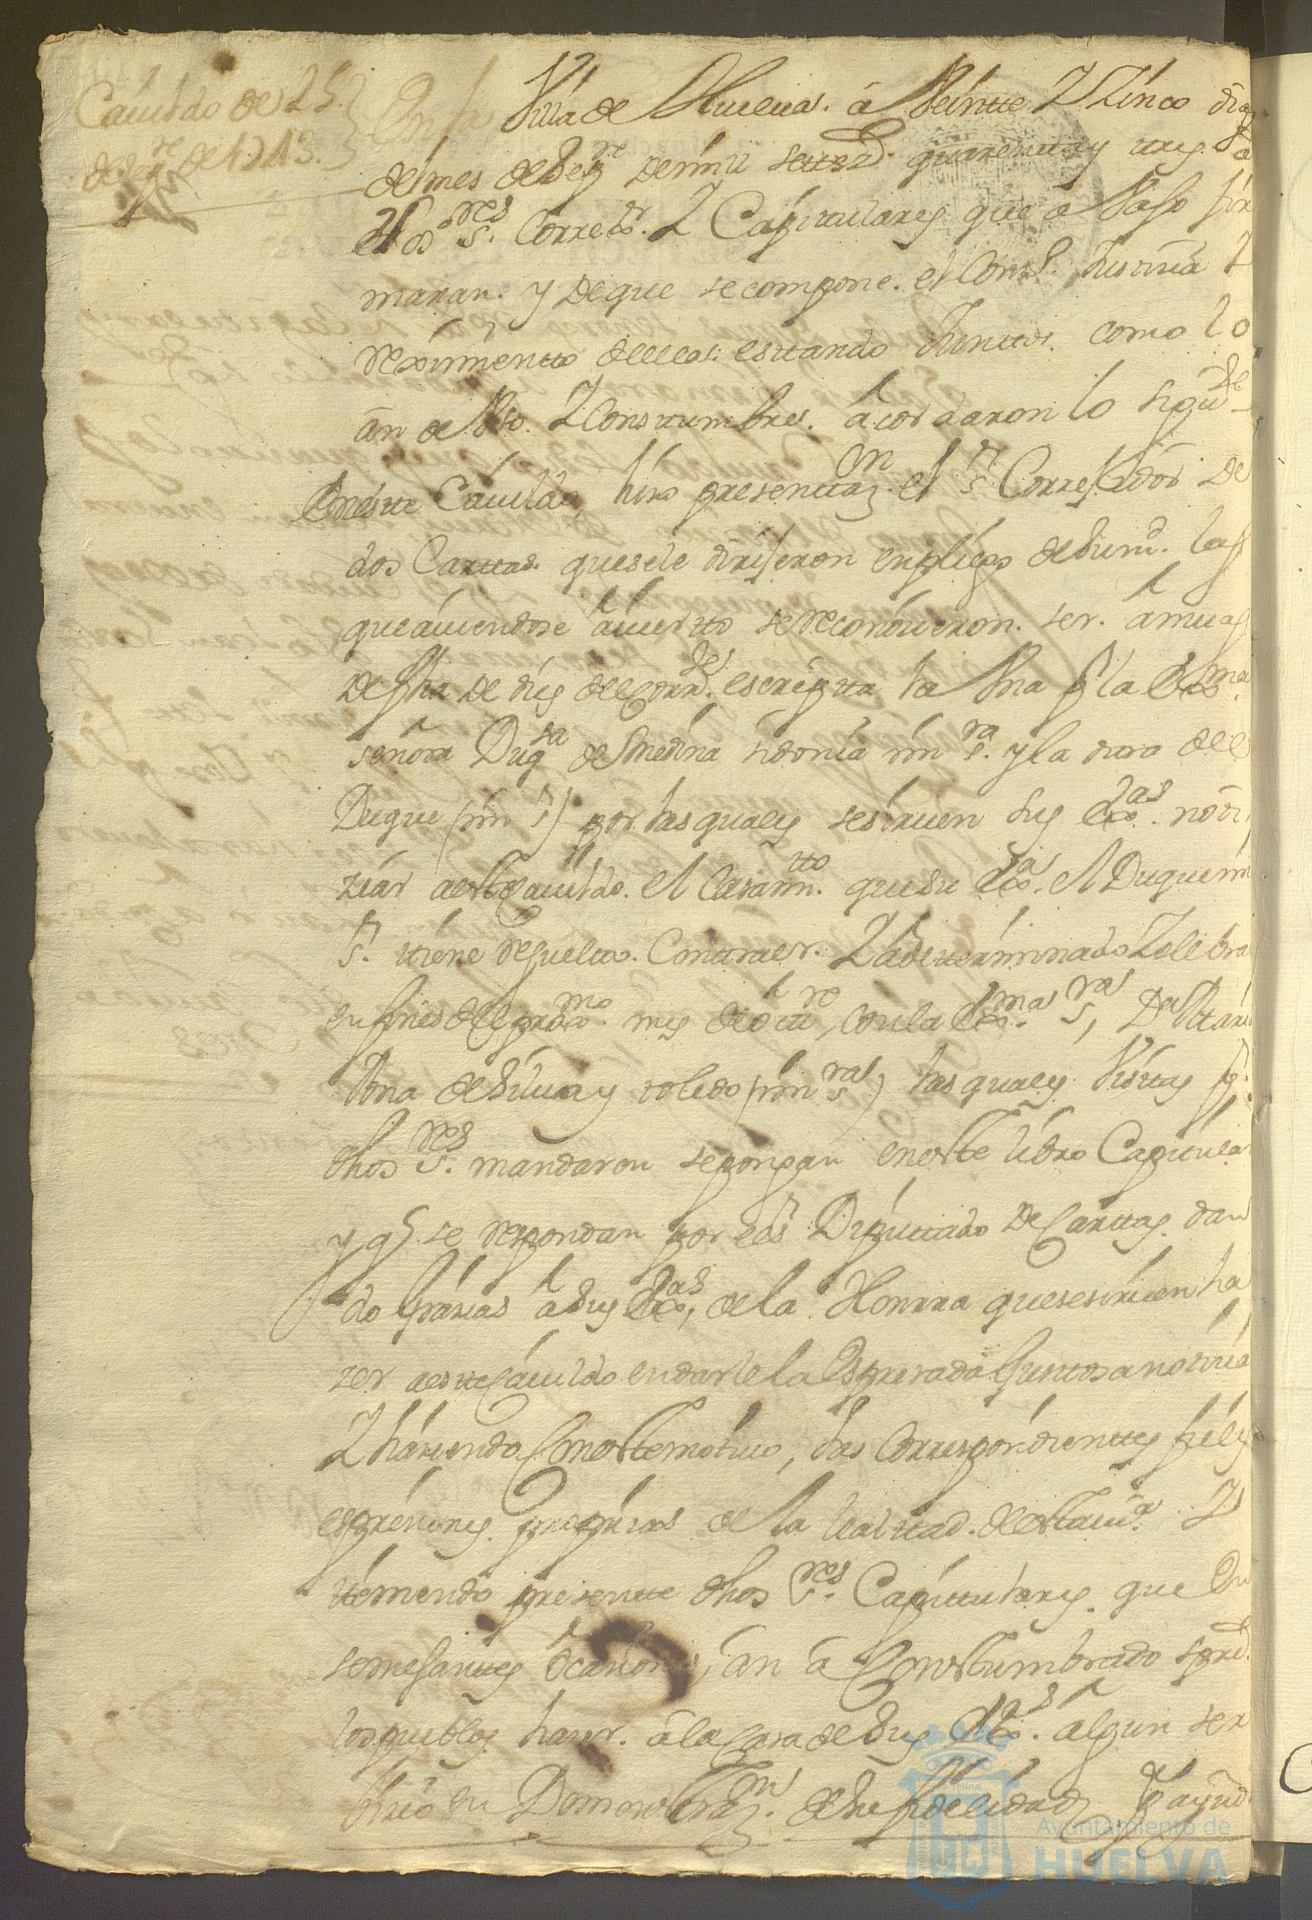 Cavildo de 25
de Sepre de 1743.
En la Villa de Huelva. á Veintte Y Zinco dias
del mes de Sepre de mill settezs. quarenta y tres. Los
dhos Sres. Correxr. Y Capitulares que a Vajo fir
maran. y de que se compone. el Conso. Justizia Y
reximientto de ella: estando Junttos. como lo
an de Vso. Y Consttumbre. acordaron lo sigute
En este Cavildo hizo presentazon. el Sr. Correxidor De
dos Carttas. que se le dirijeron en pliego de Sund. las
que aviendose aviertto se reconozieron. ser. amvas
De fha de dies del Corrte. escriptta la Vna pr la Exma
señora Duqsa de Medina sidonia mi sra. y la otra del
Duque (mi Sr) por las quales se sirven sus Exas. noti
ziar a este Cavildo. el Casamtto. que su Exa. el Duque mi
Sr. tiene resuelto. Contraer. Y a determinado Zelebrar
en fines del proxmo. mes de octtre, con la Exma Sra, Da Mari
Ana de Silva y toledo (mi sra) las quales Vistas pr.
dhos Sres. mandaron se pongan en este libro Capitular
y qe. se respondan por el Sr Diputtado de Carttas. dan
do Grasias a sus Exas, de la Honrra que se sirven ha
zer a este Cavildo en darle la Esperada Gusttosa notizia
Y haziendo Con este motivo, las Correspondientes fieles
espreziones propias de la lealttad. de esta va. Y
teniendo presentte dhos Sres. Capittulares. que En
semejantes ocaziones, an a Costumbrado
los pueblos hazer. a la Casa de Sus Exas. algun ser
bizio en Demostrazon. de su fidelidad, Y ayud
Ayuntamiento de
HUELVA